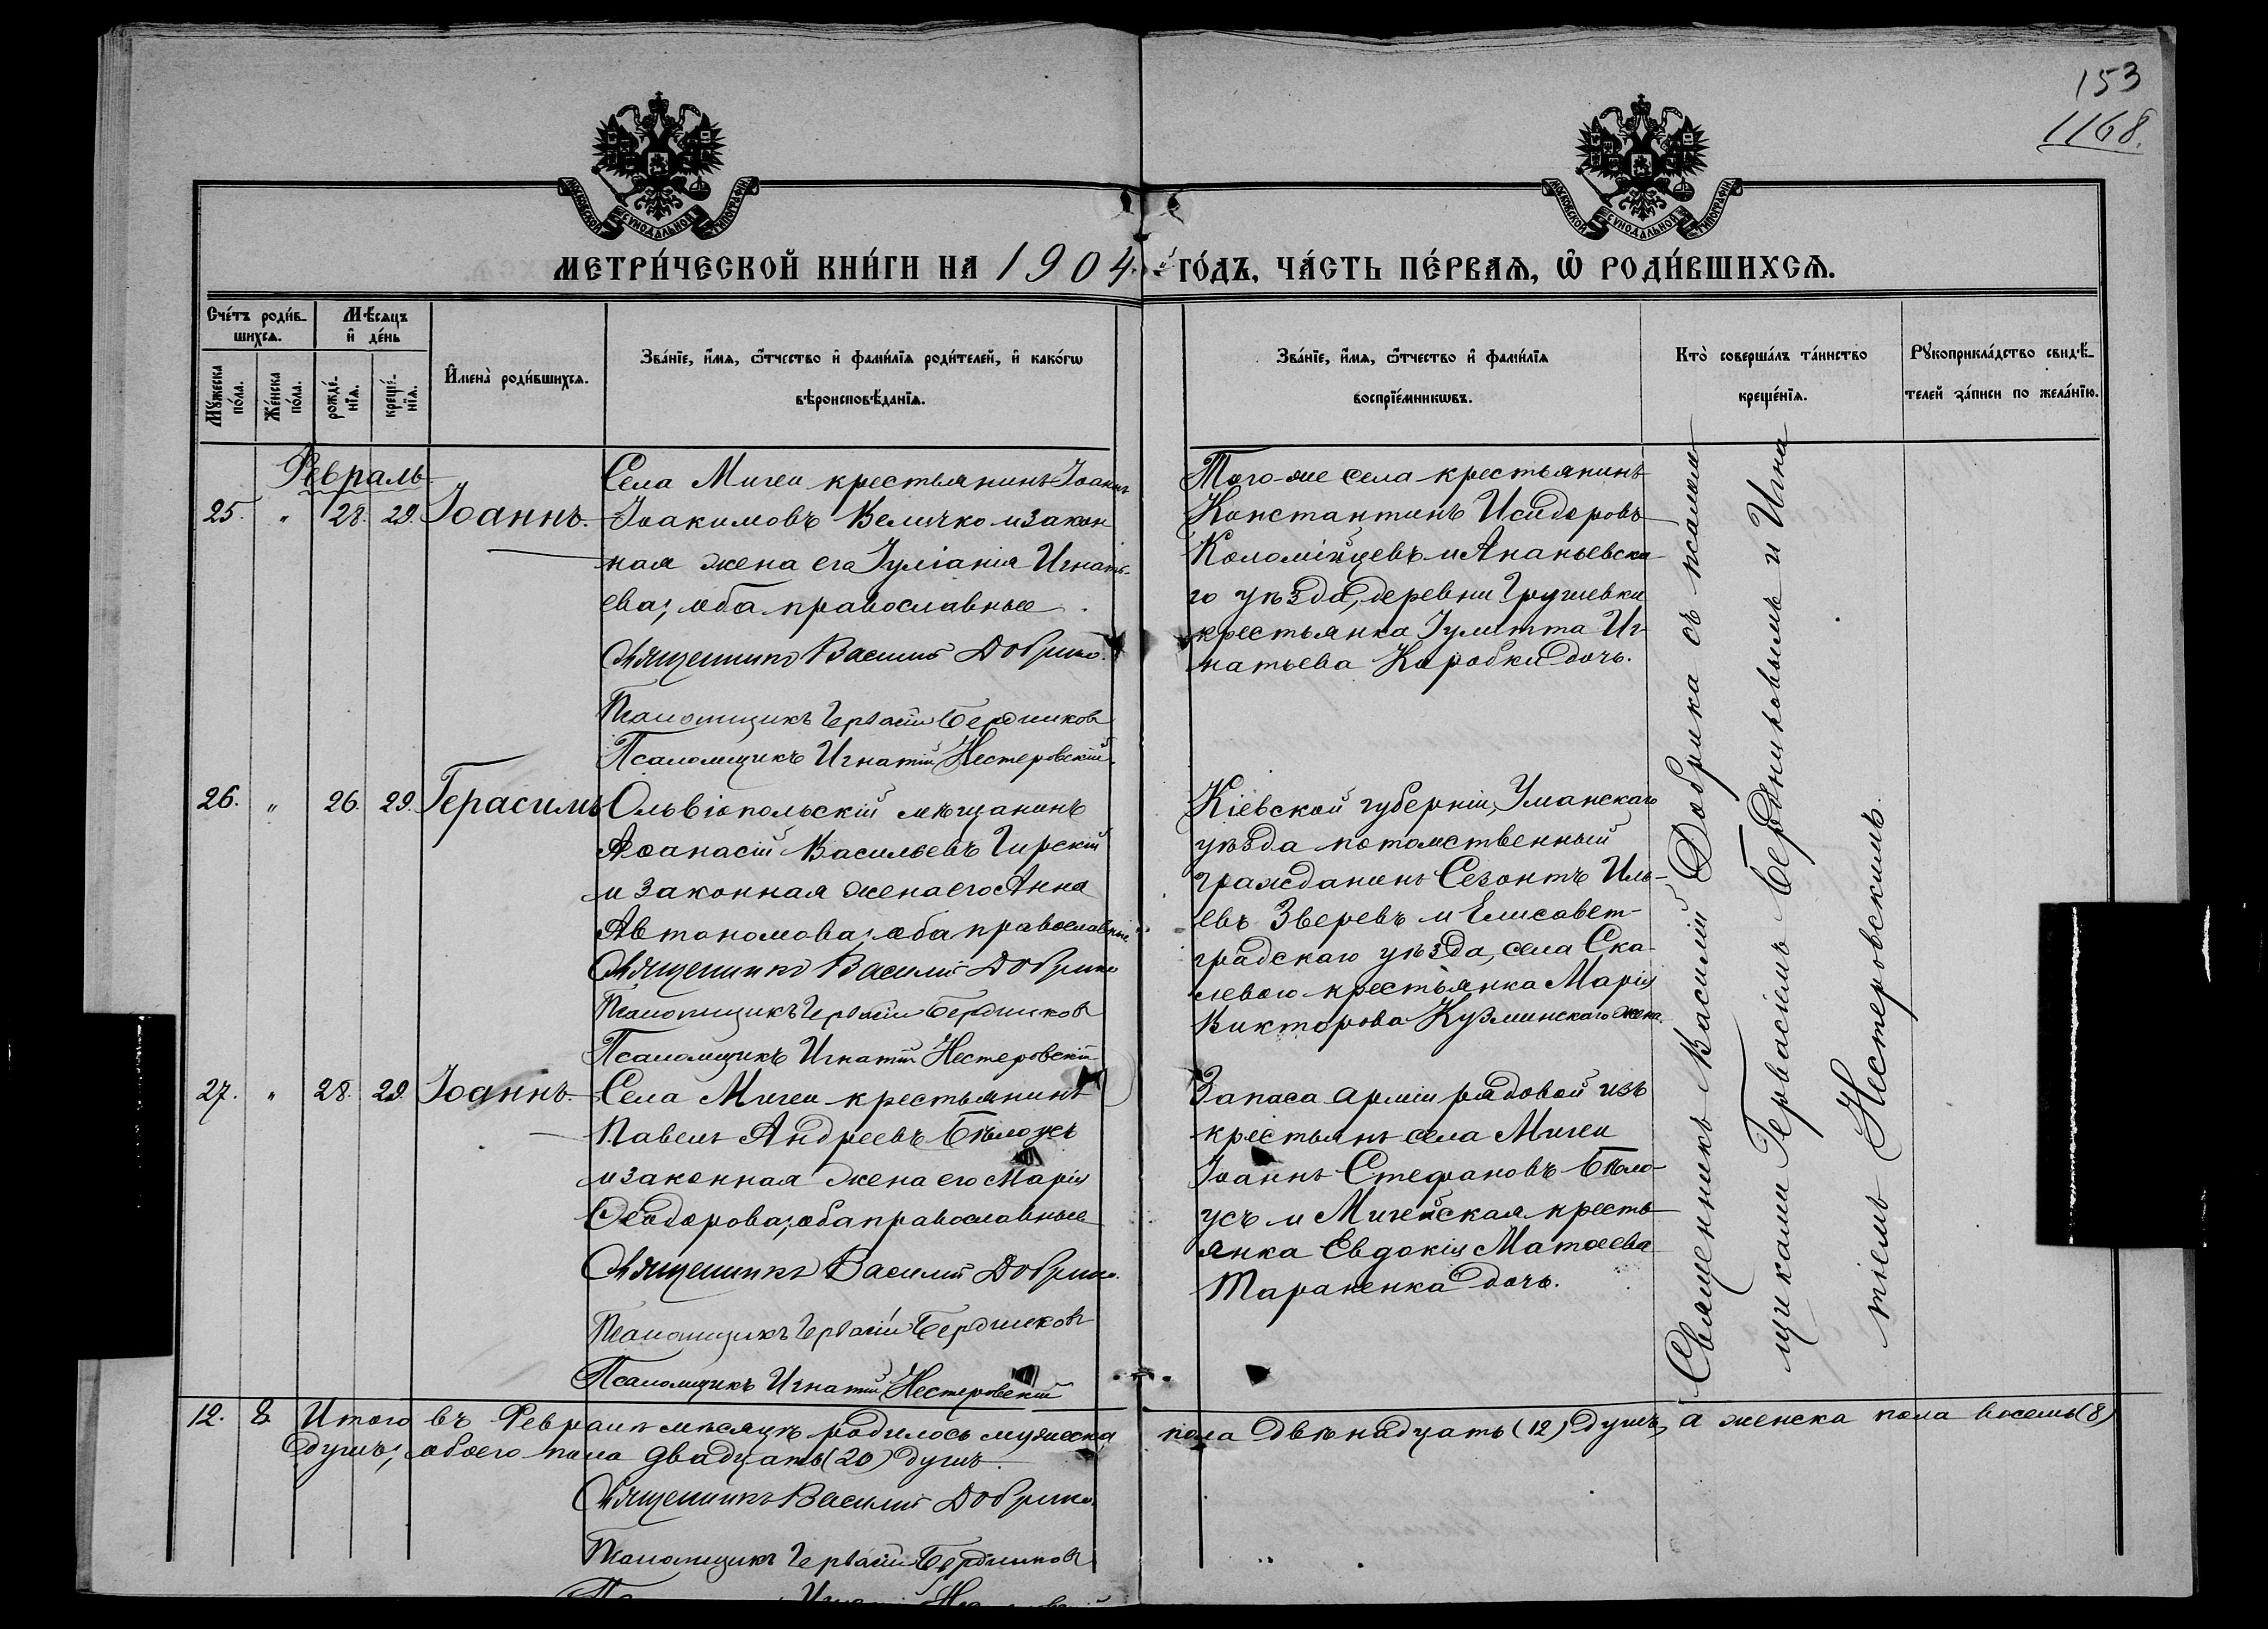 153
1168.
МОСКОВСКОЙ СѴНОДАЛЬНОЙ ТИПОГРАФІИ
МОСКОВСКОЙ СѴНОДАЛЬНОЙ ТИПОГРАФІИ
МЕТРИ́ЧЕСКОЙ КНИ́ГИ НА 1904 ГО́ДЪ, ЧА́СТЬ ПЕ́РВАѦ, Ѡ҆ РОДИ́ВШИХСѦ.
Сче́тъ роди́в-
шихсѧ.
Му́жеска
по́ла.
Же́нска
по́ла.
Мѣ́сѧцъ
и҆ де́нь
рожде́-
нїѧ.
креще́-
нїѧ.
И҆мена̀ роди́вшихсѧ.
Зва́нїе, и҆́мѧ, ѻ҆́тчество и҆ фами́лїѧ роди́телей, и҆ како́гѡ
вѣроисповѣ́данїѧ.
Зва́нїе, и҆́мѧ, ѻ҆́тчество и҆ фами́лїѧ
воспрїе́мникѡвъ.
Кто̀ соверша́лъ та́инство
креще́нїѧ.
Рꙋкоприкла́дство свидѣ́-
телей за́писи по жела́нїю.
Февраль
25. " 28. 29. Іоаннъ.
Села Мигеи крестьянинъ Іоаннъ
Іоакимовъ Величко и закон
ная жена его Іуліанія Игнать-
ева; оба православные.
Священникъ Василій Добрика.
Псаломщикъ Гервасій Бердников
Псаломщикъ Игнатій Нестеровскій.
Того-же села крестьянинъ
Константинъ Исидоровъ
Коломійцевъ и Ананьевска-
го уѣзда, деревни Грушевки
крестьянка Іулитта Иг-
натьева Коробки дочь.
26. " 26. 29. Герасимъ
Ольвіопольскій мѣщанинъ
Аѳанасій Васильевъ Гирскій
и законная жена его Анна
Автономова; оба православные
Священникъ Василій Добрика
Псаломщикъ Гервасій Бердников
Псаломщикъ Игнатій Нестеровскій
Кіевской губерніи, Уманскаго
уѣзда потомственный
гражданинъ Созонтъ Иль-
евъ Зверевъ и Елисавет-
градскаго уѣзда, села Ска-
левого крестьянка Марія
Викторова Кузминскаго жена.
27. " 28. 29. Іоаннъ.
Села Мигеи крестьянинъ
Павелъ Андреевъ Бѣлоусъ
и законная жена его Марія
Ѳеодорова; оба православные
Священникъ Василій Добрика.
Псаломщикъ Гервасій Бердников
Псаломщикъ Игнатій Нестеровскій
Запаса арміи рядовой изъ
крестьянъ села Мигеи
Іоаннъ Стефановъ Бѣло-
усъ и Мигейская кресть-
янка Евдокія Матѳеева
Тараненка дочь.
Священникъ Василій Добрика съ псалом-
щиками Гервасіемъ Бердниковымъ и Игна
тіемъ Нестеровскимъ.
12. 8. Итого въ Февралѣ мѣсяцѣ родилось мужеска пола двѣнадцать (12) душъ, а женска пола восемь (8)
душъ, обоего пола двадцать (20) душъ.
Священникъ Василій Добрика.
Псаломщикъ Гервасій Бердников